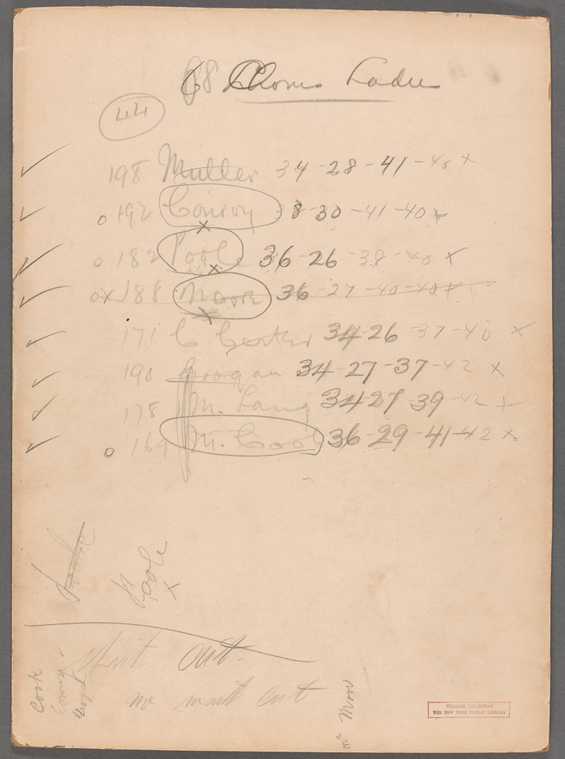 68 Chorus Ladies
44
198 Muller 34-28-41-40 x
o 192 Conroy 38-30-41-40 x
o 182 Poole 36-26-38-40 x
ox 188 Moore 36-27-40-40 x
171 C 34 26-37-40 x
190 Grogan 34-27-37-42 x
178 M. Lang 34 27-39-42 x
o 169 M. Cook 36-29-41-42 x
Poole
x
Skirt out.
no mantt out
Cook
Moore
THE NEW YORK PUBLIC LIBRARY